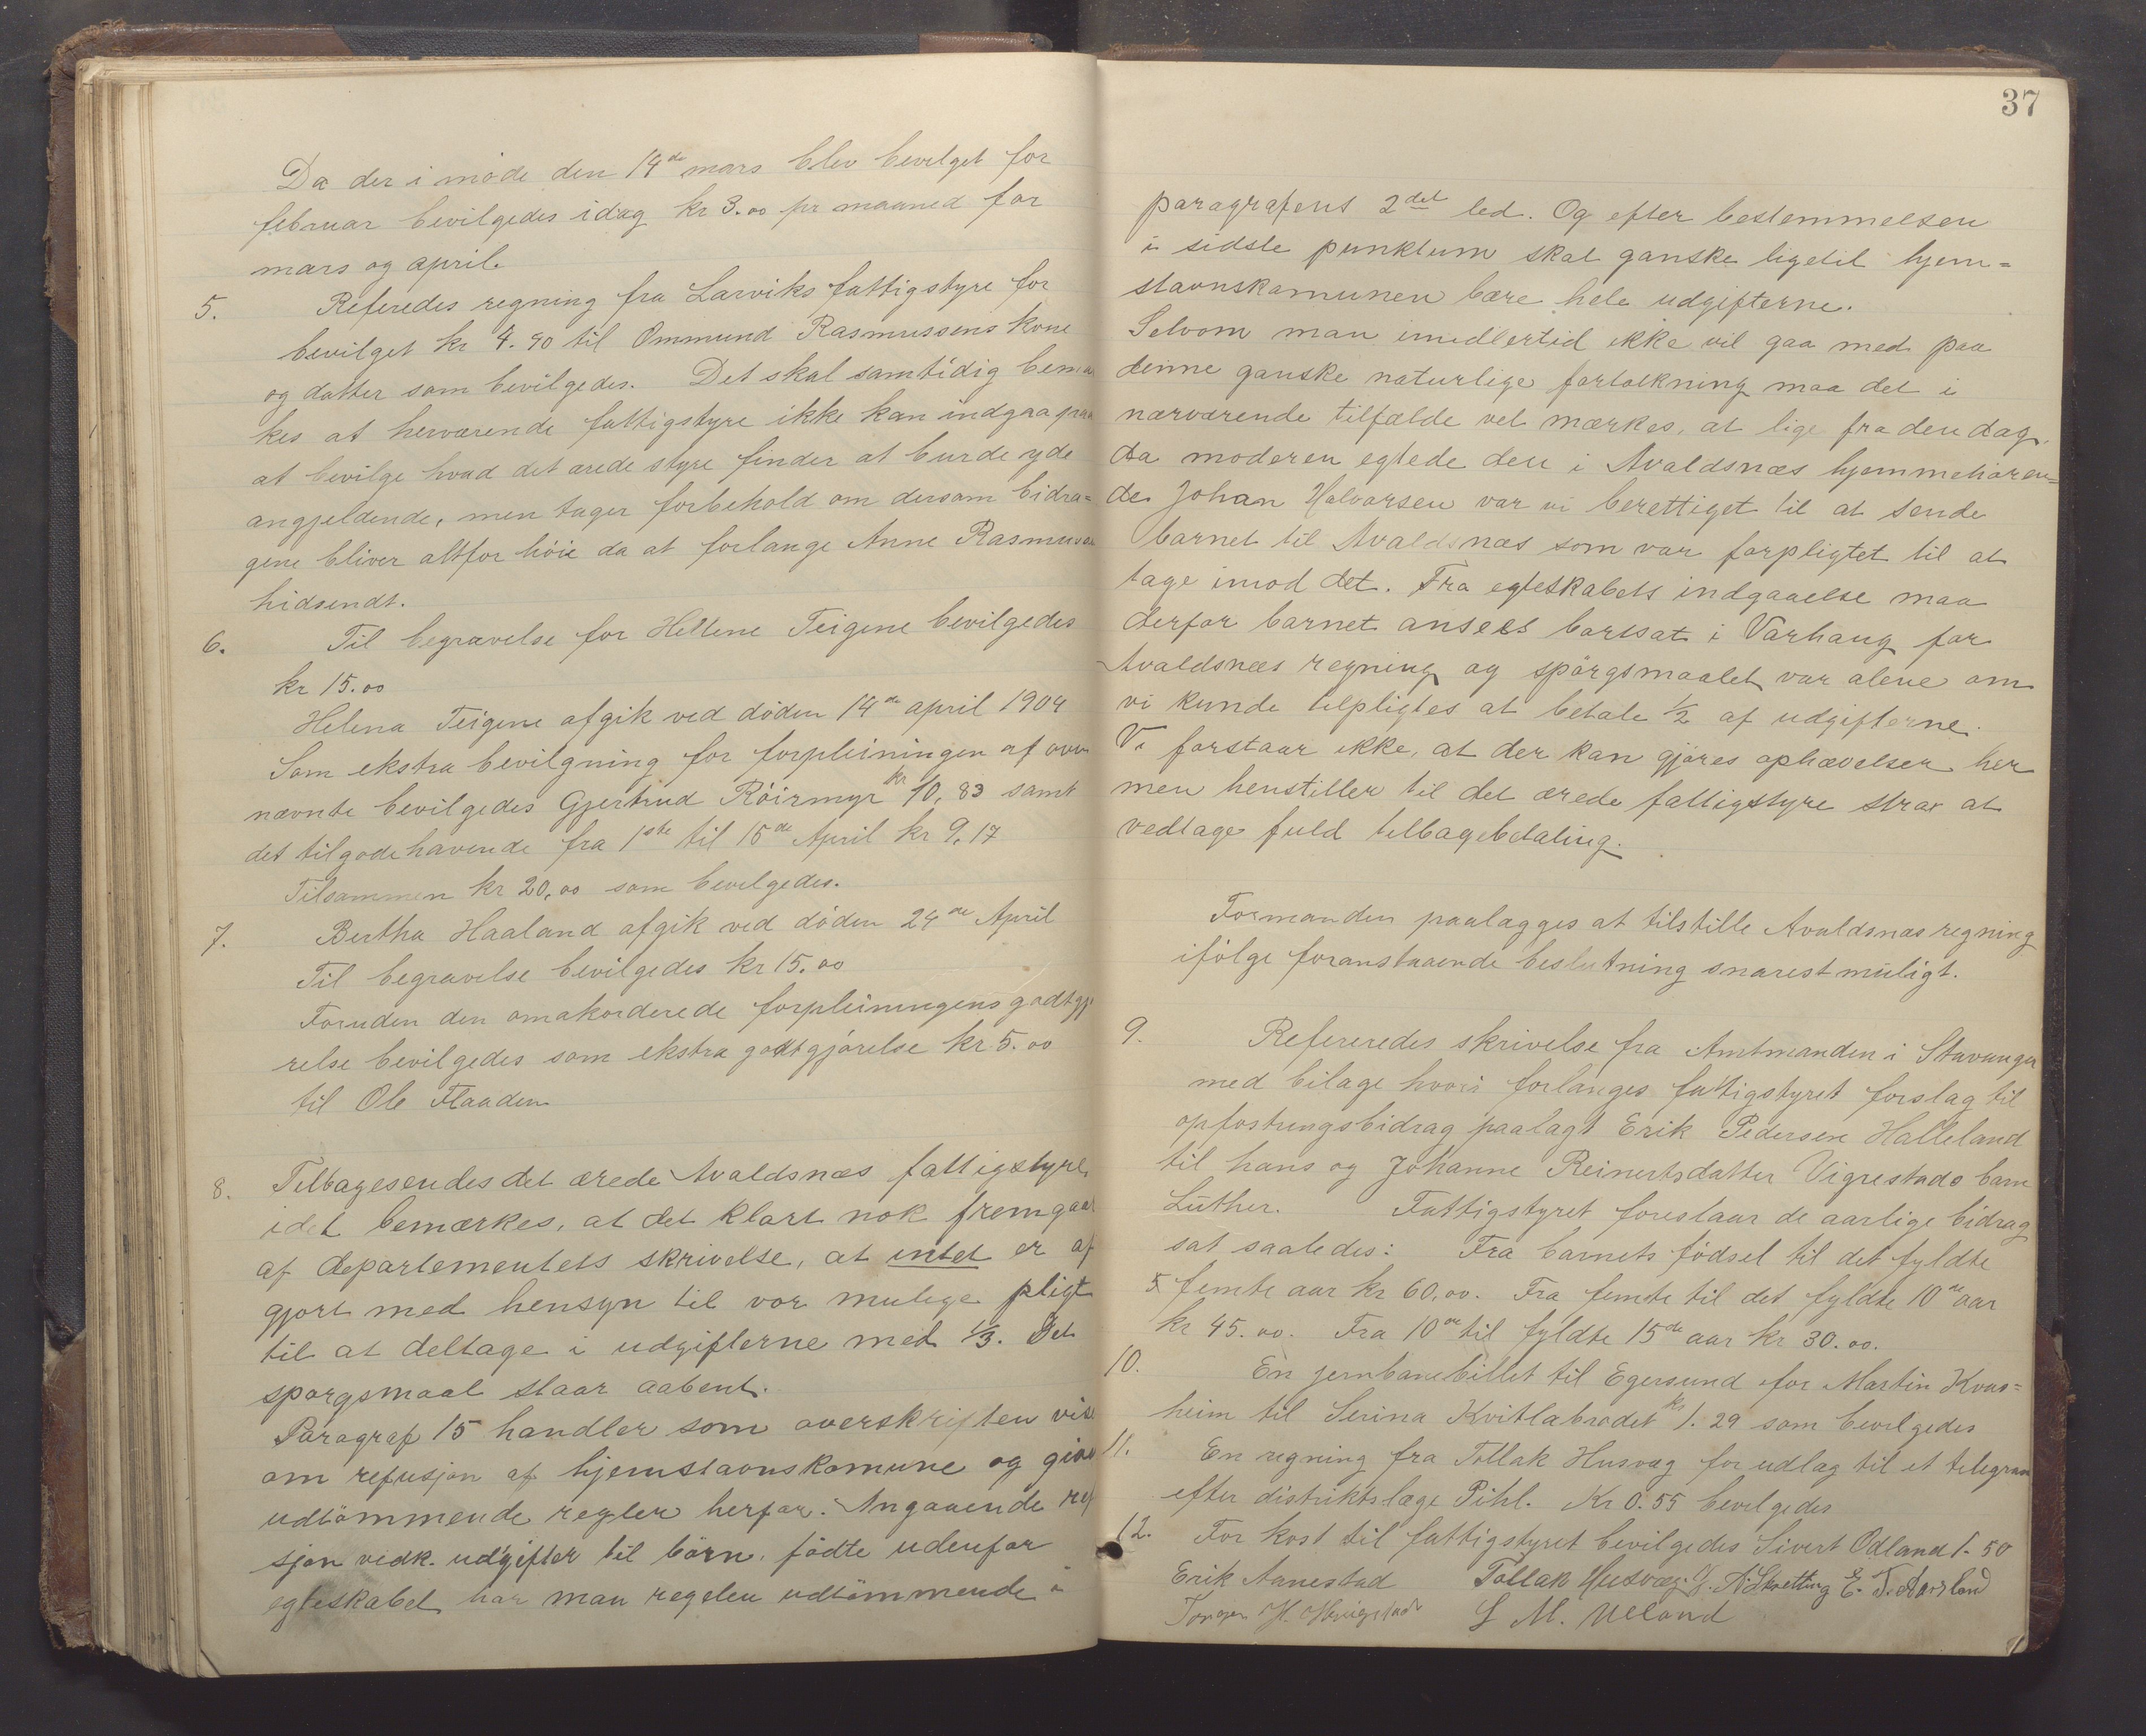 Da der i møde den 14de mars blev bevilget for
februar bevilgedes idag kr 3.00 pr maaned for
mars og april.
5. Referedes regning fra Larviks fattigstyre for
bevilget kr 4.90 til Ommund Rasmussens kone
og datter som bevilgedes. Det skal samtidig bemær
kes at herværende fattigstyre ikke kan indgaa paa
at bevilge hvad det ærede styre finder at burde yde
angjeldende, men tager forbehold om dersom bidra=
gene bliver altfor høie da at forlange Anne Rasmussen
hidsendt.
6. Til begravelse for Hellene Teigene bevilgedes
kr 15.00
Helena Teigene afgik ved døden 14de april 1904
Som ekstra bevilgning for forpleiningen af oven
nævnte bevilgedes Gjertrud Róirmyr kr 10,83 samt
det tilgodehavende fra 1ste til 15de April kr 9,17
Tilsammen kr 20,00 som bevilgedes.
7. Bertha Haaland afgik ved døden 24de April
Til begravelse bevilgedes kr 15.00
Foruden den omakorderede forpleiningens godtgjø
relse bevilgedes som ekstra godtgjørelse kr 5.00
til Ole Flaaden
8. Tilbagesendes det ærede Avaldsnæs fattigstyre,
idet bemærkes, at det klart nok fremgaar
af departementets skrivelse, at intet er af
gjort med hensyn til vor mulige pligt
til at deltage i udgifterne med 1/3. Det
spørgsmaal staar aabent.
Paragraf 15 handler som overskriften viser
om refusjon af hjemstavnskomune og giver
udtømmende regler herfor. Angaaende ref
sjon vedk. udgifter til börn, födte udenfor
egteskabet har man regelen udtømmende i
37
paragrafens 2det led. Og efter bestemmelsen
i sidste punktum skal ganske ligetil hjem=
stavnskomunen bære hele udgifterne.
Selvom man imidlertid ikke vil gaa med paa
denne ganske naturlige fortolkning maa det i
nærværende tilfælde vel mærkes, at lige fra den dag,
da moderen egtede den i Avaldsnæs hjemmehören=
de Johan Halvorsen var vi berettiget til at sende
barnet til Avaldsnæs som var forpligtet til at
tage imod det. Fra egteskabets indgaaelse maa
derfor barnet ansees bortsat i Varhaug for
Avaldsnæs regning og spörgsmaalet var alene om
vi kunde tilpligtes at betale 1/2 af udgifterne.
Vi forstaar ikke, at der kan gjöres ophævelser her
men henstiller til det ærede fattigstyre strax at
vedtage fuld tilbagebetaling.
Formanden paalægges at tilstille Avaldsnæs regning
ifölge foranstaaende beslutning snarest muligt.
9. Refereredes skrivelse fra Amtmanden i Stavanger
med bilage hvori forlanges fattigstyret forslag til
opfostringsbidrag paalagt Erik Pedersen Halleland
til hans og Johanne Reinertsdatter Vigrestads barn
Lúther. Fattigstyret foreslaar de aarlige bidrag
sat saaledes: Fra barnets födsel til det fyldte
5 femte aar kr 60,00. Fra femte til det fyldte 10de aar
kr 45.00. Fra 10de til fyldte 15de aar kr 30.00.
10. En jernbanebillet til Egersund for Martin Kvas=
heim til Serina Kvitlabrødet kr 1.29 som bevilgedes
11. En regning fra Tollak Husvæg for udlæg til et telegram
efter distriktslæge Pihl. Kr 0.55 bevilgedes
12. For kost til fattigstyret bevilgedes Sivert Odland 1.50
Erik Aanestad Tollak Husvæg. A. Skretting E. T. Aarsland
L M. Ueland